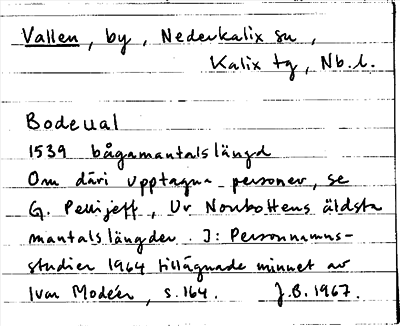 Vallen, by, Nederkalix sn,
Kalix tg, Nb.l.
Bodeual
1539 bågamantalslängd
Om däri upptagna personer, se
G. Pellijeff, Ur Norrbottens äldsta
mantalslängder. I: Personnamns-
studier 1964 tillägnade minnet av
Ivar Modéer, s. 164. J.B. 1967.